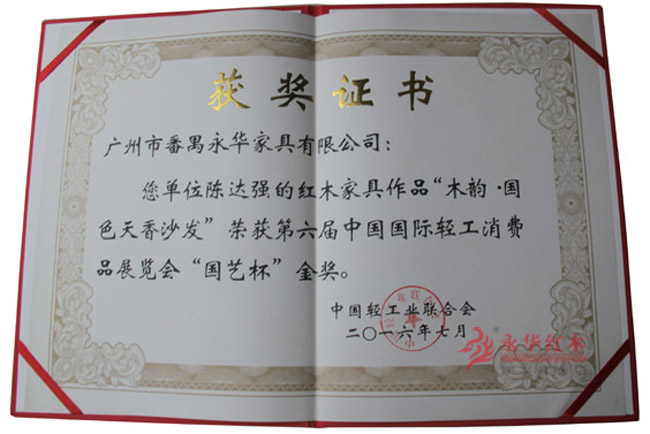 获奖证书
广州市番禺永华家具有限公司：
您单位陈达强的红木家具作品“木韵·国
色天香沙发”荣获第六届中国国际轻工消费
品展览会“国艺杯”金奖。
中国轻工业联合会
二〇一六年七月
永华红木